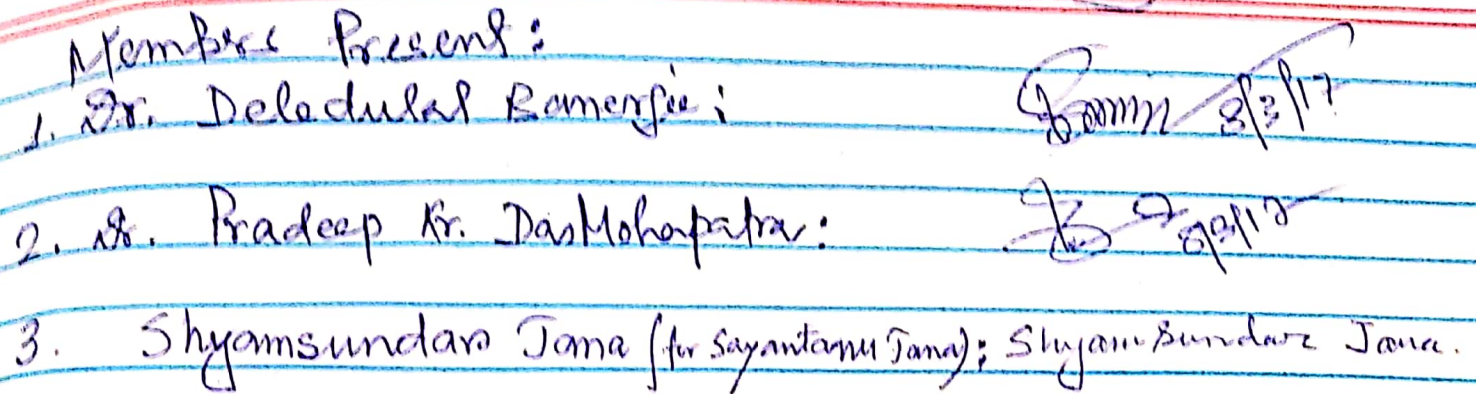 Members Present:
1. Dr. Deledulal Banerjee: 8/3/17
2. Dr. Pradeep Kr. DasMohapatra: 8/3/17
3. Shyamsundar Jana (for Sayantanu Jana): Shyam Sundar Jana.